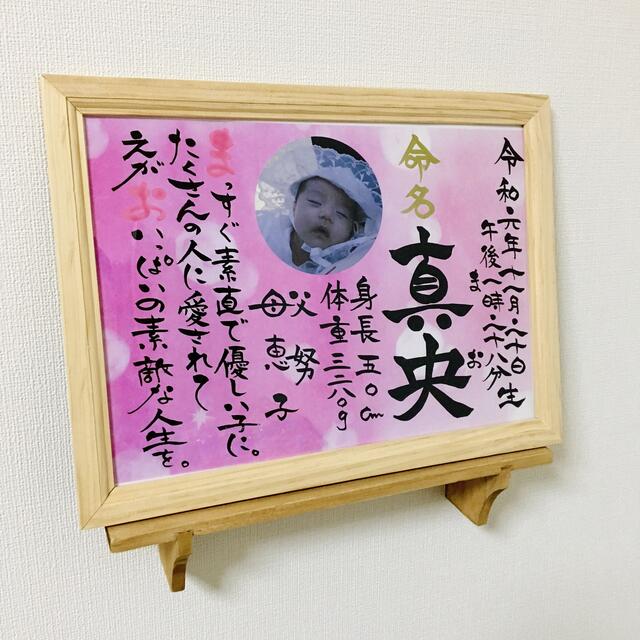 令和元年十一月二十日
午後一時二十八分生
命名
まお
真央
身長五〇cm
体重三二八〇g
父努
母恵子
まっすぐ素直で優しい子に。
たくさんの人に愛されて
えがおいっぱいの素敵な人生を。